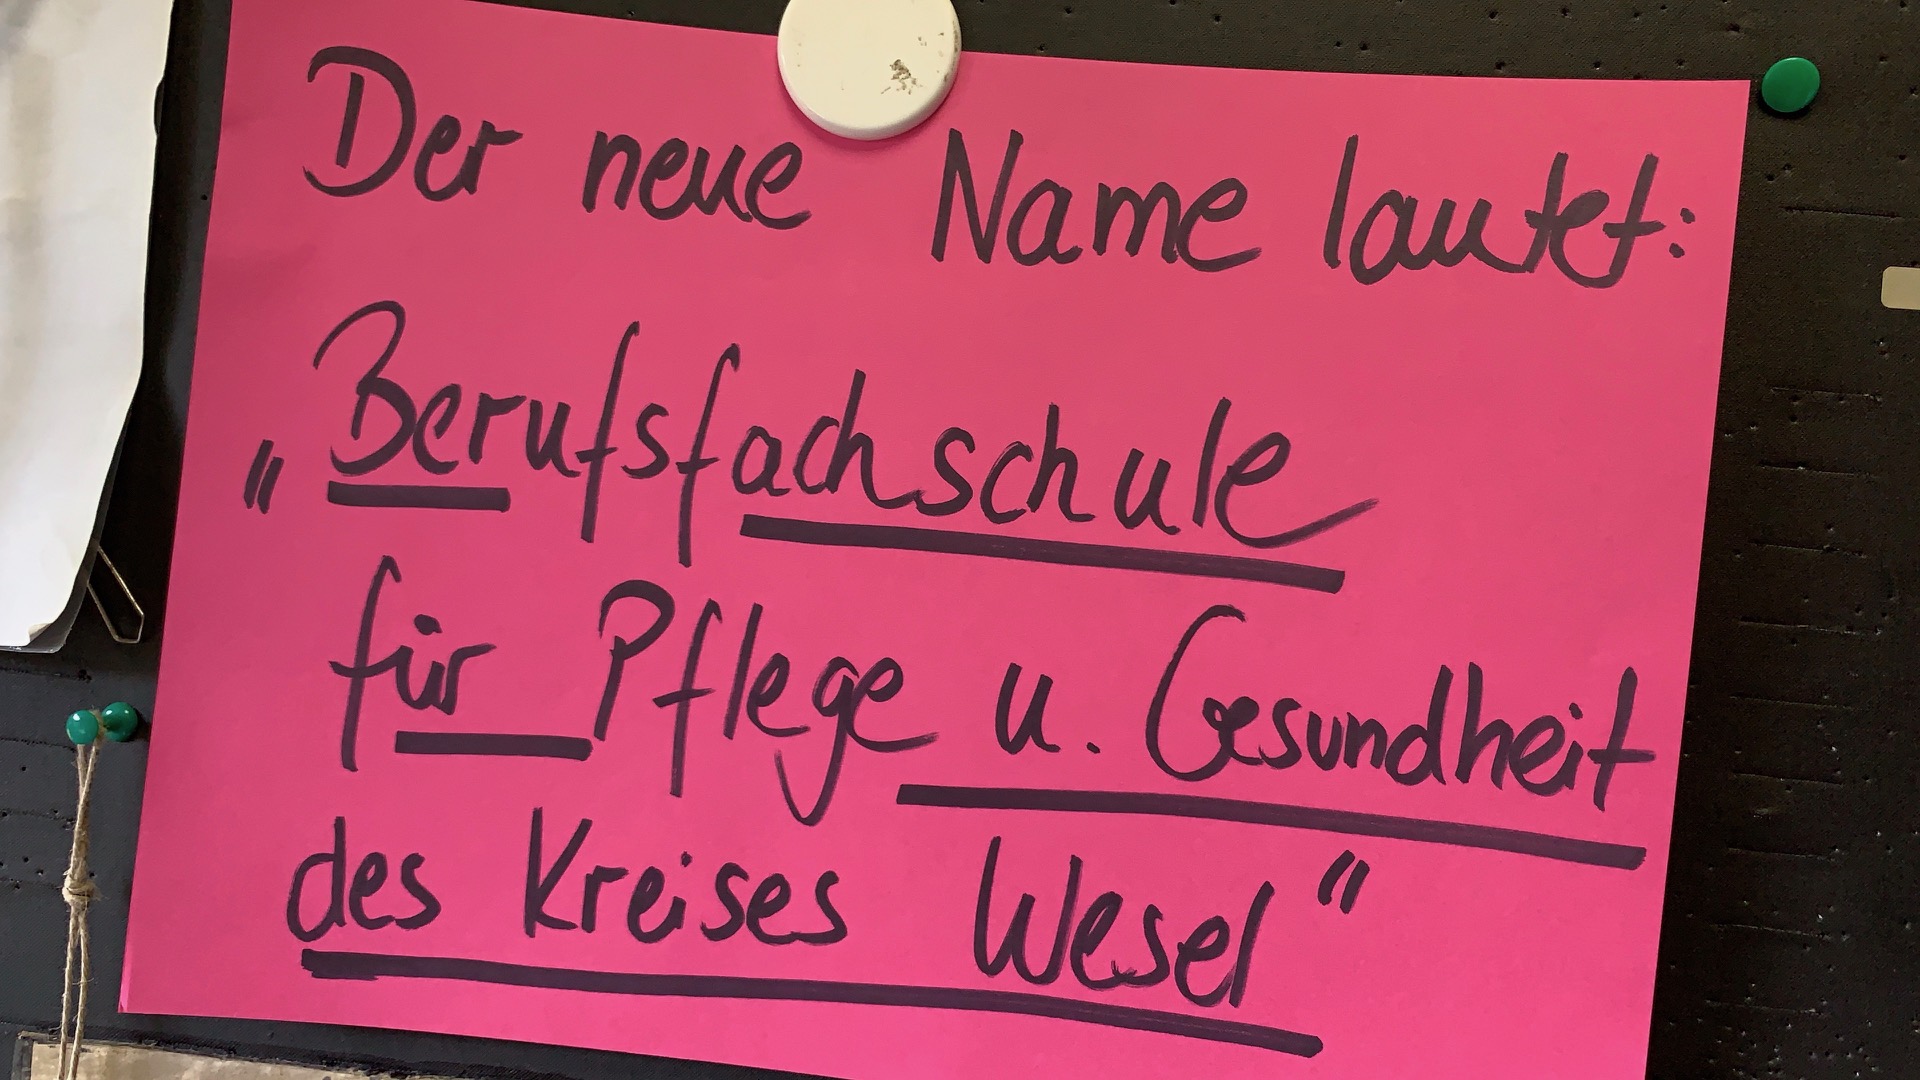 Der neue Name lautet:
"Berufsfachschule
für Pflege u. Gesundheit
des Kreises Wesel"